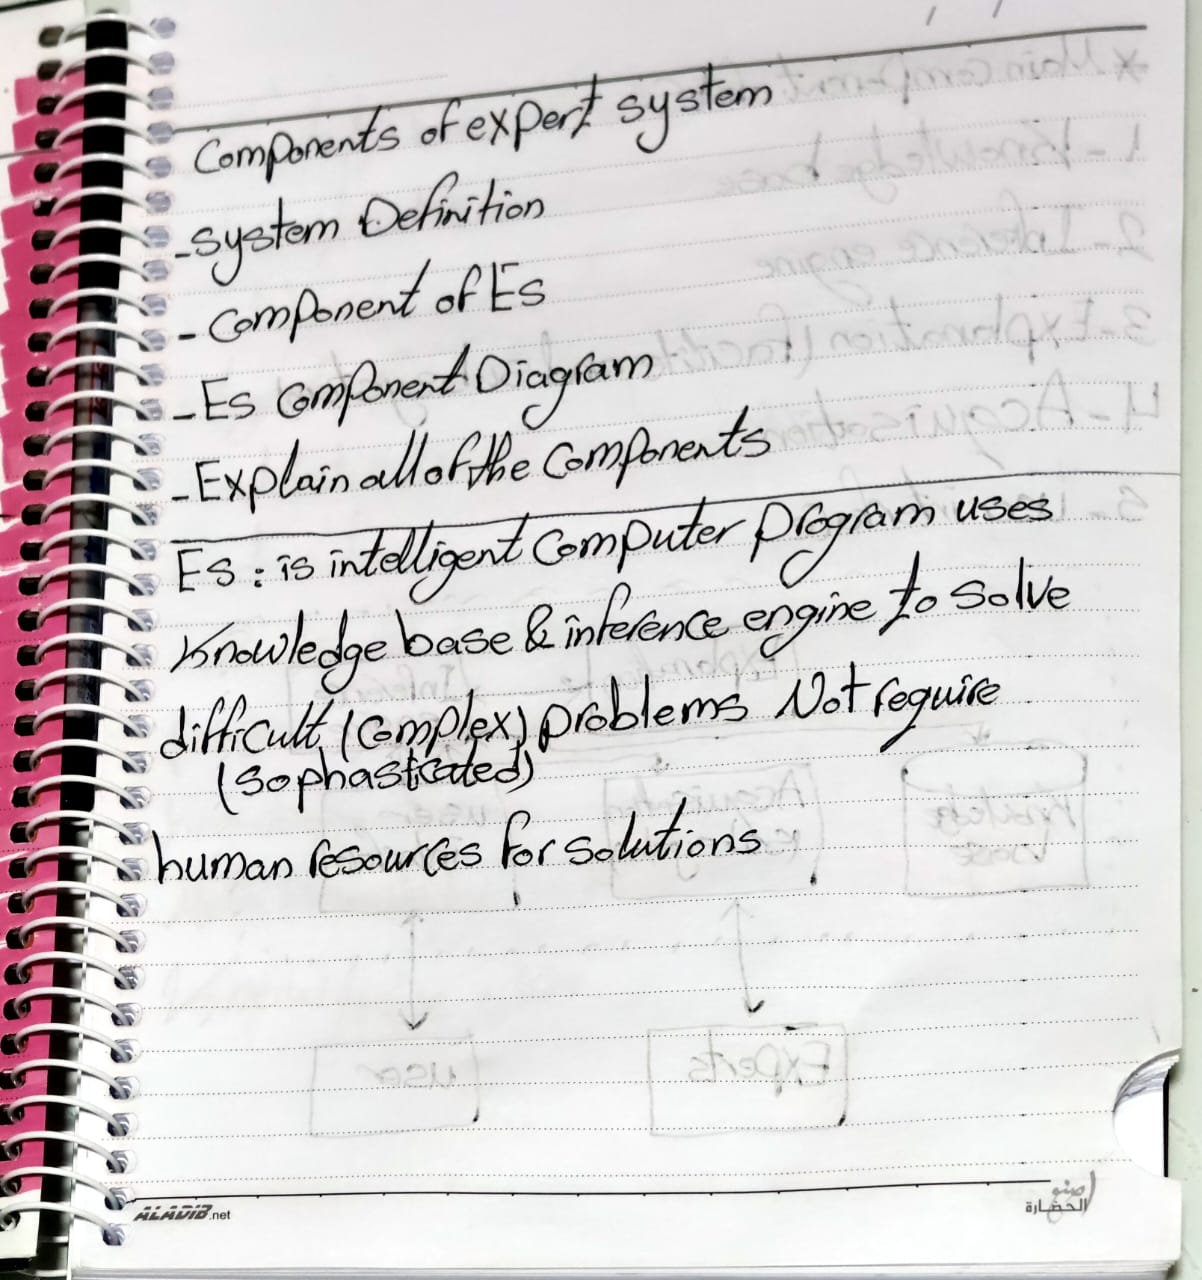 Components of expert system
- system Definition
- component of Es
- Es component Diagram
- Explain all of the components
Es : is intelligent computer program uses
Knowledge base & inference engine to solve
difficult (complex) problems Not require
(sophasticated)
human resources for solutions
ALADIB.net
الحضارة